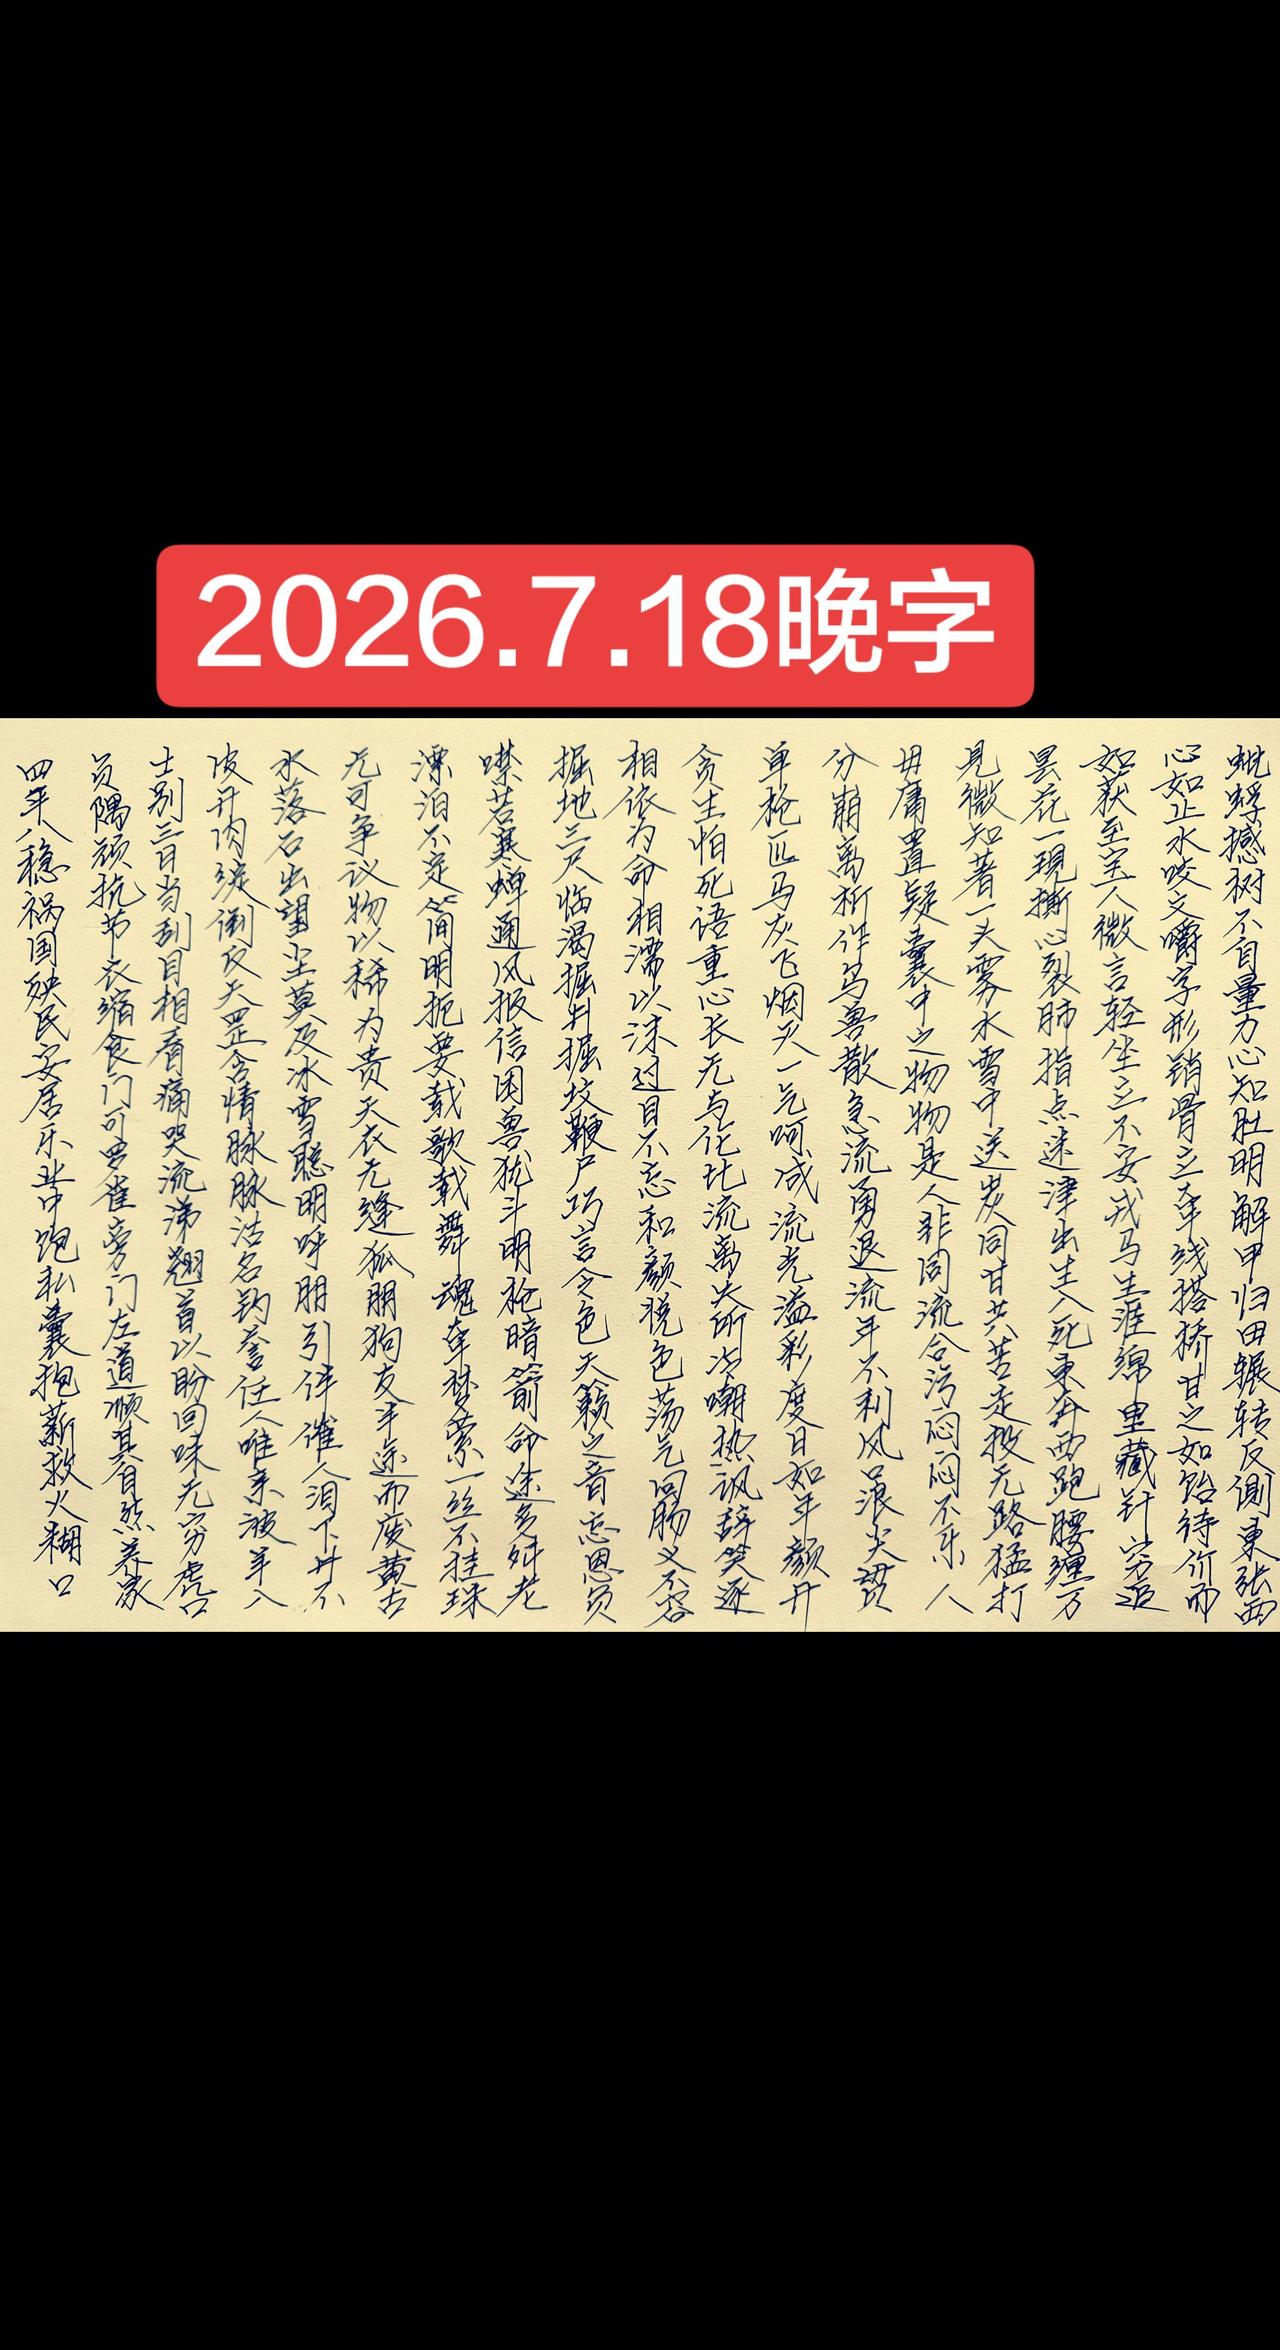 2026.7.18晚字
蚍蜉撼树不自量力心知肚明解甲归田辗转反侧东张西
心如止水咬文嚼字形销骨立牵线搭桥甘之如饴待价而
如获至宝人微言轻坐立不安戎马生涯绵里藏针穷追
昙花一現撕心裂肺指点迷津出生入死东奔西跑腰缠万
見微知著一头雾水雪中送炭同甘共苦走投无路猛打
毋庸置疑囊中之物物是人非同流合污闷闷不乐人
分崩离析作鸟兽散急流勇退流年不利风浪尖贯
单枪匹马灰飞烟灭一气呵成流光溢彩度日如年颜开
贪生怕死语重心长无与伦比流离失所冷嘲热讽辞笑逐
相依为命相濡以沫过目不忘和颜悦色荡气回肠义不容
掘地三尺临渴掘井掘坟鞭尸巧言令色天籁之音忘恩负
噤若寒蝉通风报信困兽犹斗明枪暗箭命途多舛老
漂泊不定简明扼要载歌载舞魂牵梦萦一丝不挂珠
无可争议物以稀为贵天衣无缝狐朋狗友半途而废黄古
水落石出望尘莫及冰雪聪明呼朋引伴催人泪下开不
皮开肉绽倒反天罡含情脉脉沽名钓誉任人唯亲波羊入
士别三日当刮目相看痛哭流涕翘首以盼回味无穷虎口
负隅顽抗节衣缩食门可罗雀旁门左道顺其自然养家
四平八稳祸国殃民安居乐业中饱私囊抱薪救火糊口